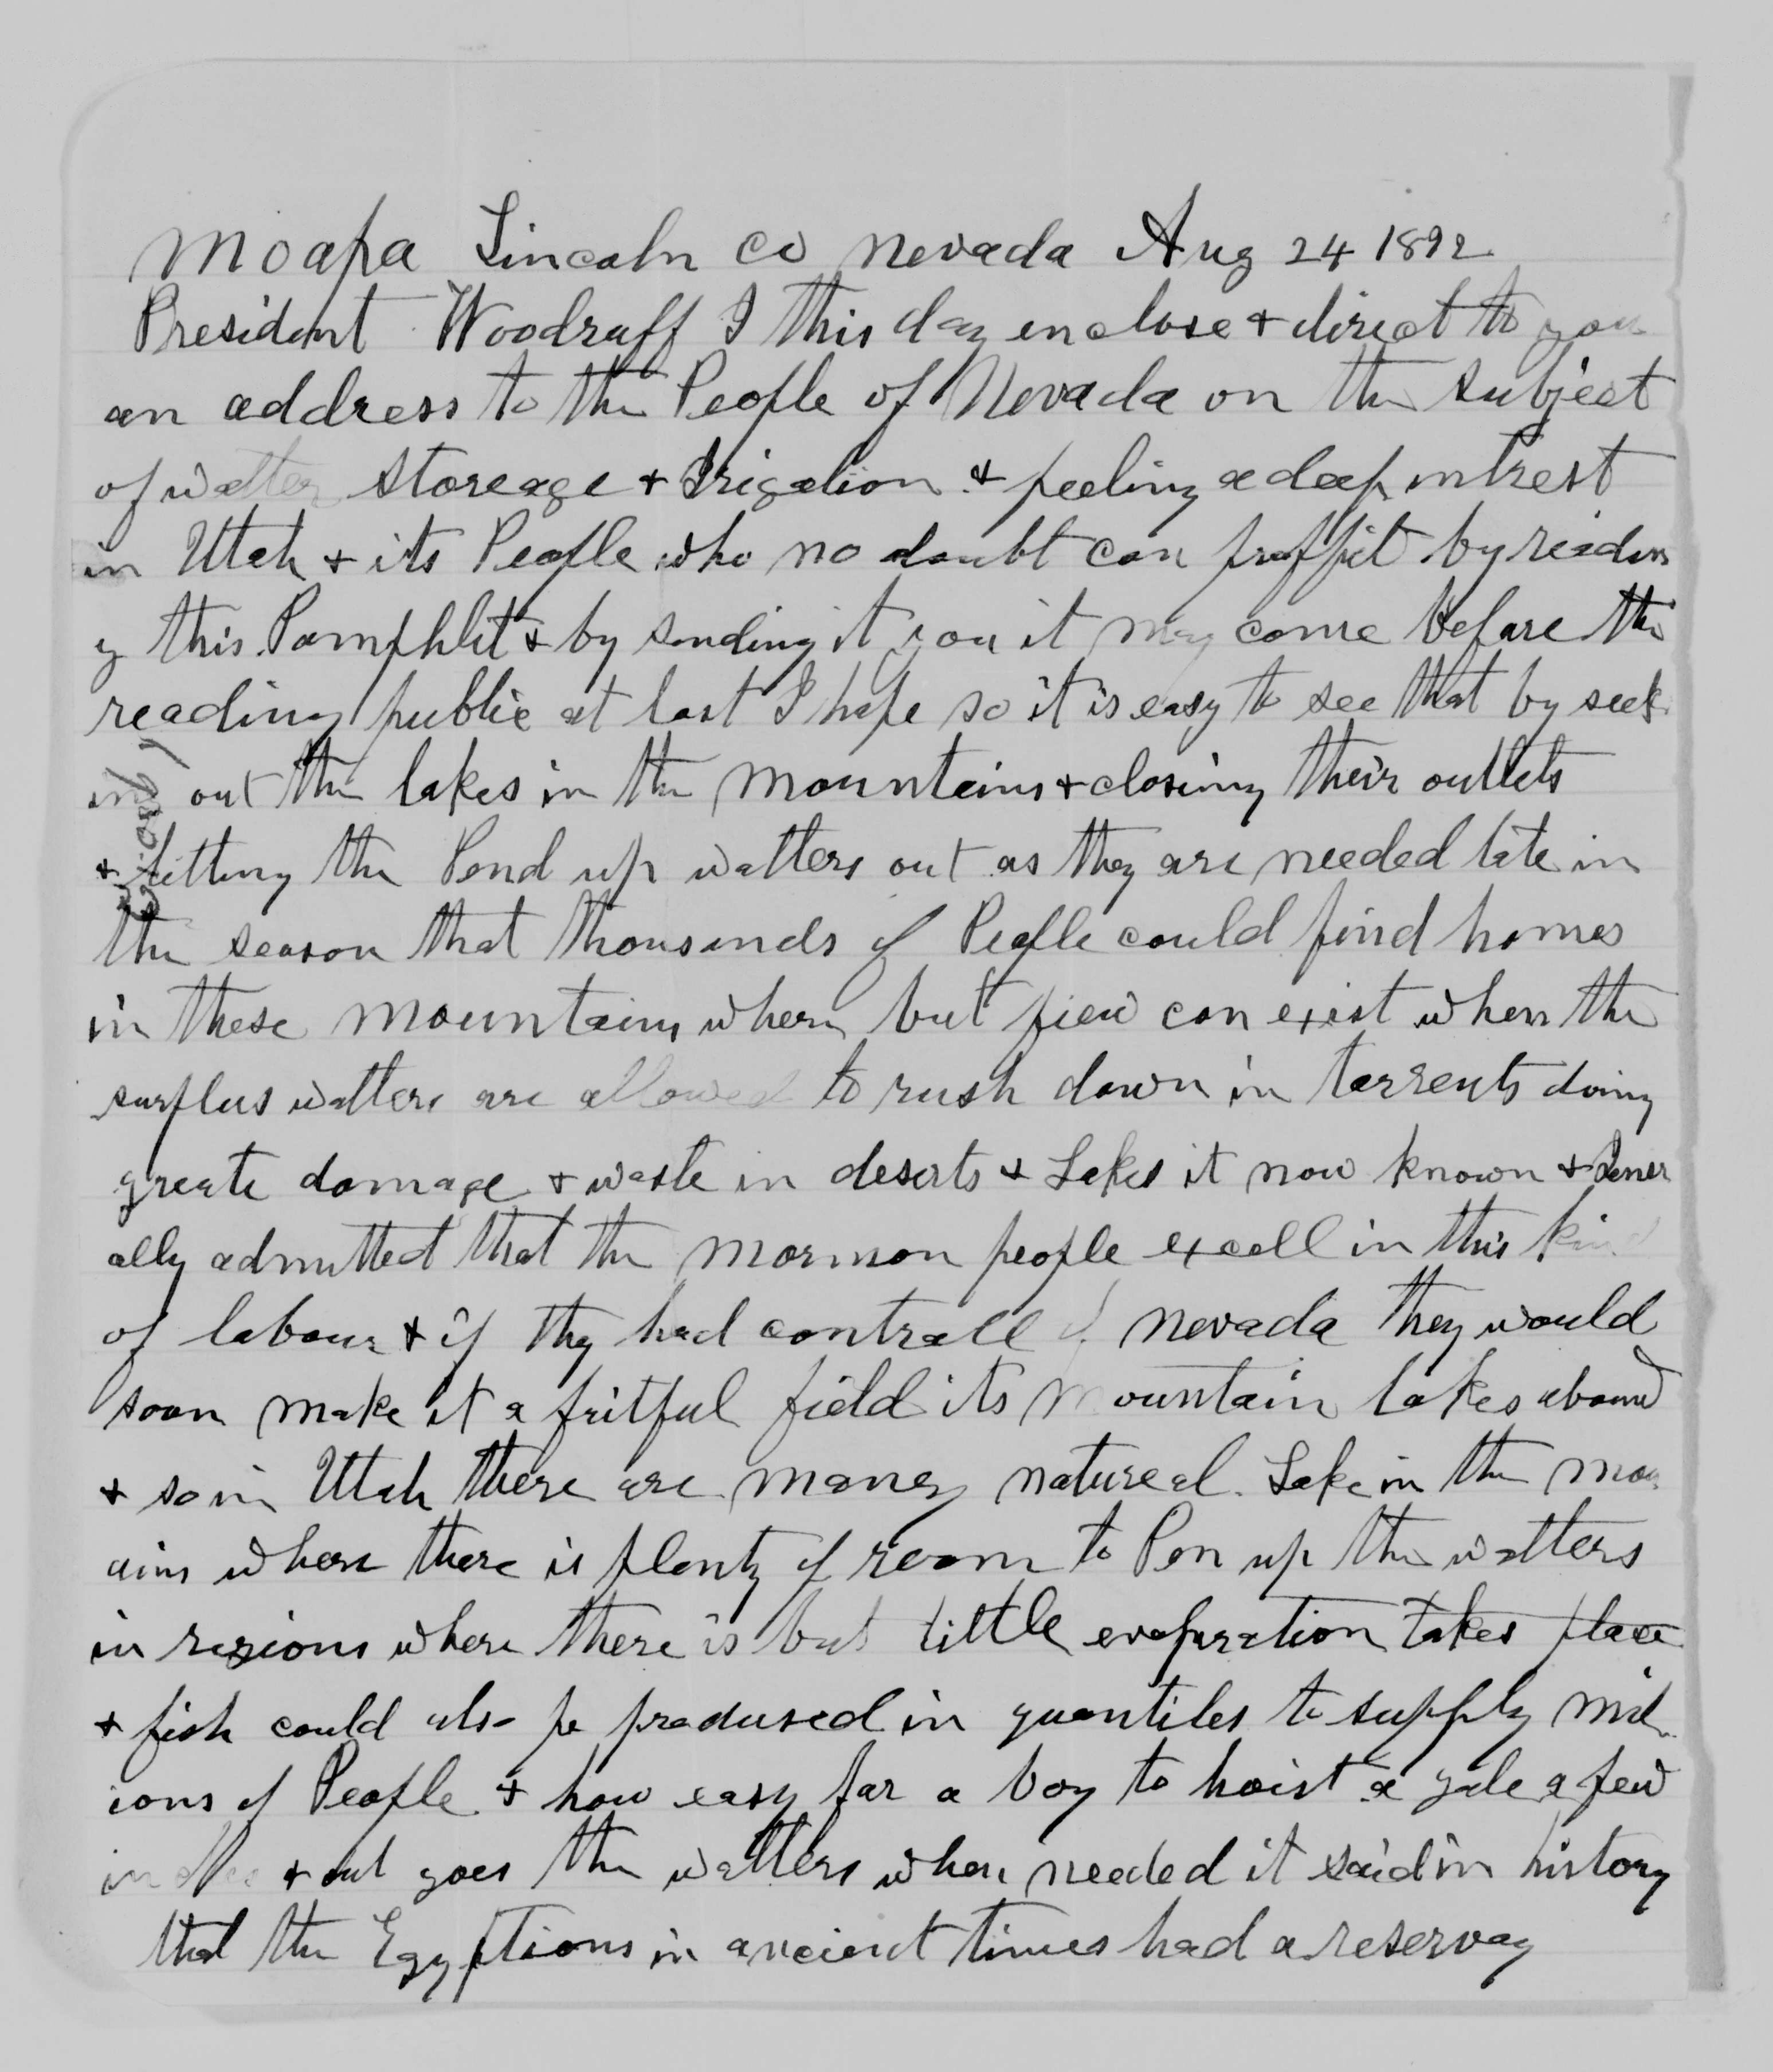 Moapa Lincoln Co Nevada Aug 24 1892
President Woodruff I this day enclose & direct to you
an address to the People of Nevada on the subject
of watter storeage & Irigation & feeling a deep intrest
in Utah & its People who no doubt can proffit by readin
g this Pamphlet & by sending it you it may come before the
reading public at last I hope so it is easy to see that by seek
ing out the lakes in the mountains & closing their outlets
& letting the Pend up watters out as they are needed late in
the season that thousands of People could find homes
in these mountains where but few can exist when the
surplus watters are allowed to rush down in torrents doing
greate damage & waste in deserts & Lakes it now known & Gener
ally admitted that the mormon people excell in this kind
of labour & if they had controll of Nevada they would
soon make it a fritful field its mountain lakes abound
& so in Utah there are maney natureal Lake in the mou
ains where there is plenty of room to Pen up the watters
in regions where there is but little evaporation takes place
& fish could also be produsced in quantiles to supply mil
ions of People & how easy for a boy to hoist a gate a few
inches & out goes the watters when needed it said in history
that the Egyptions in ancient times had a reservay